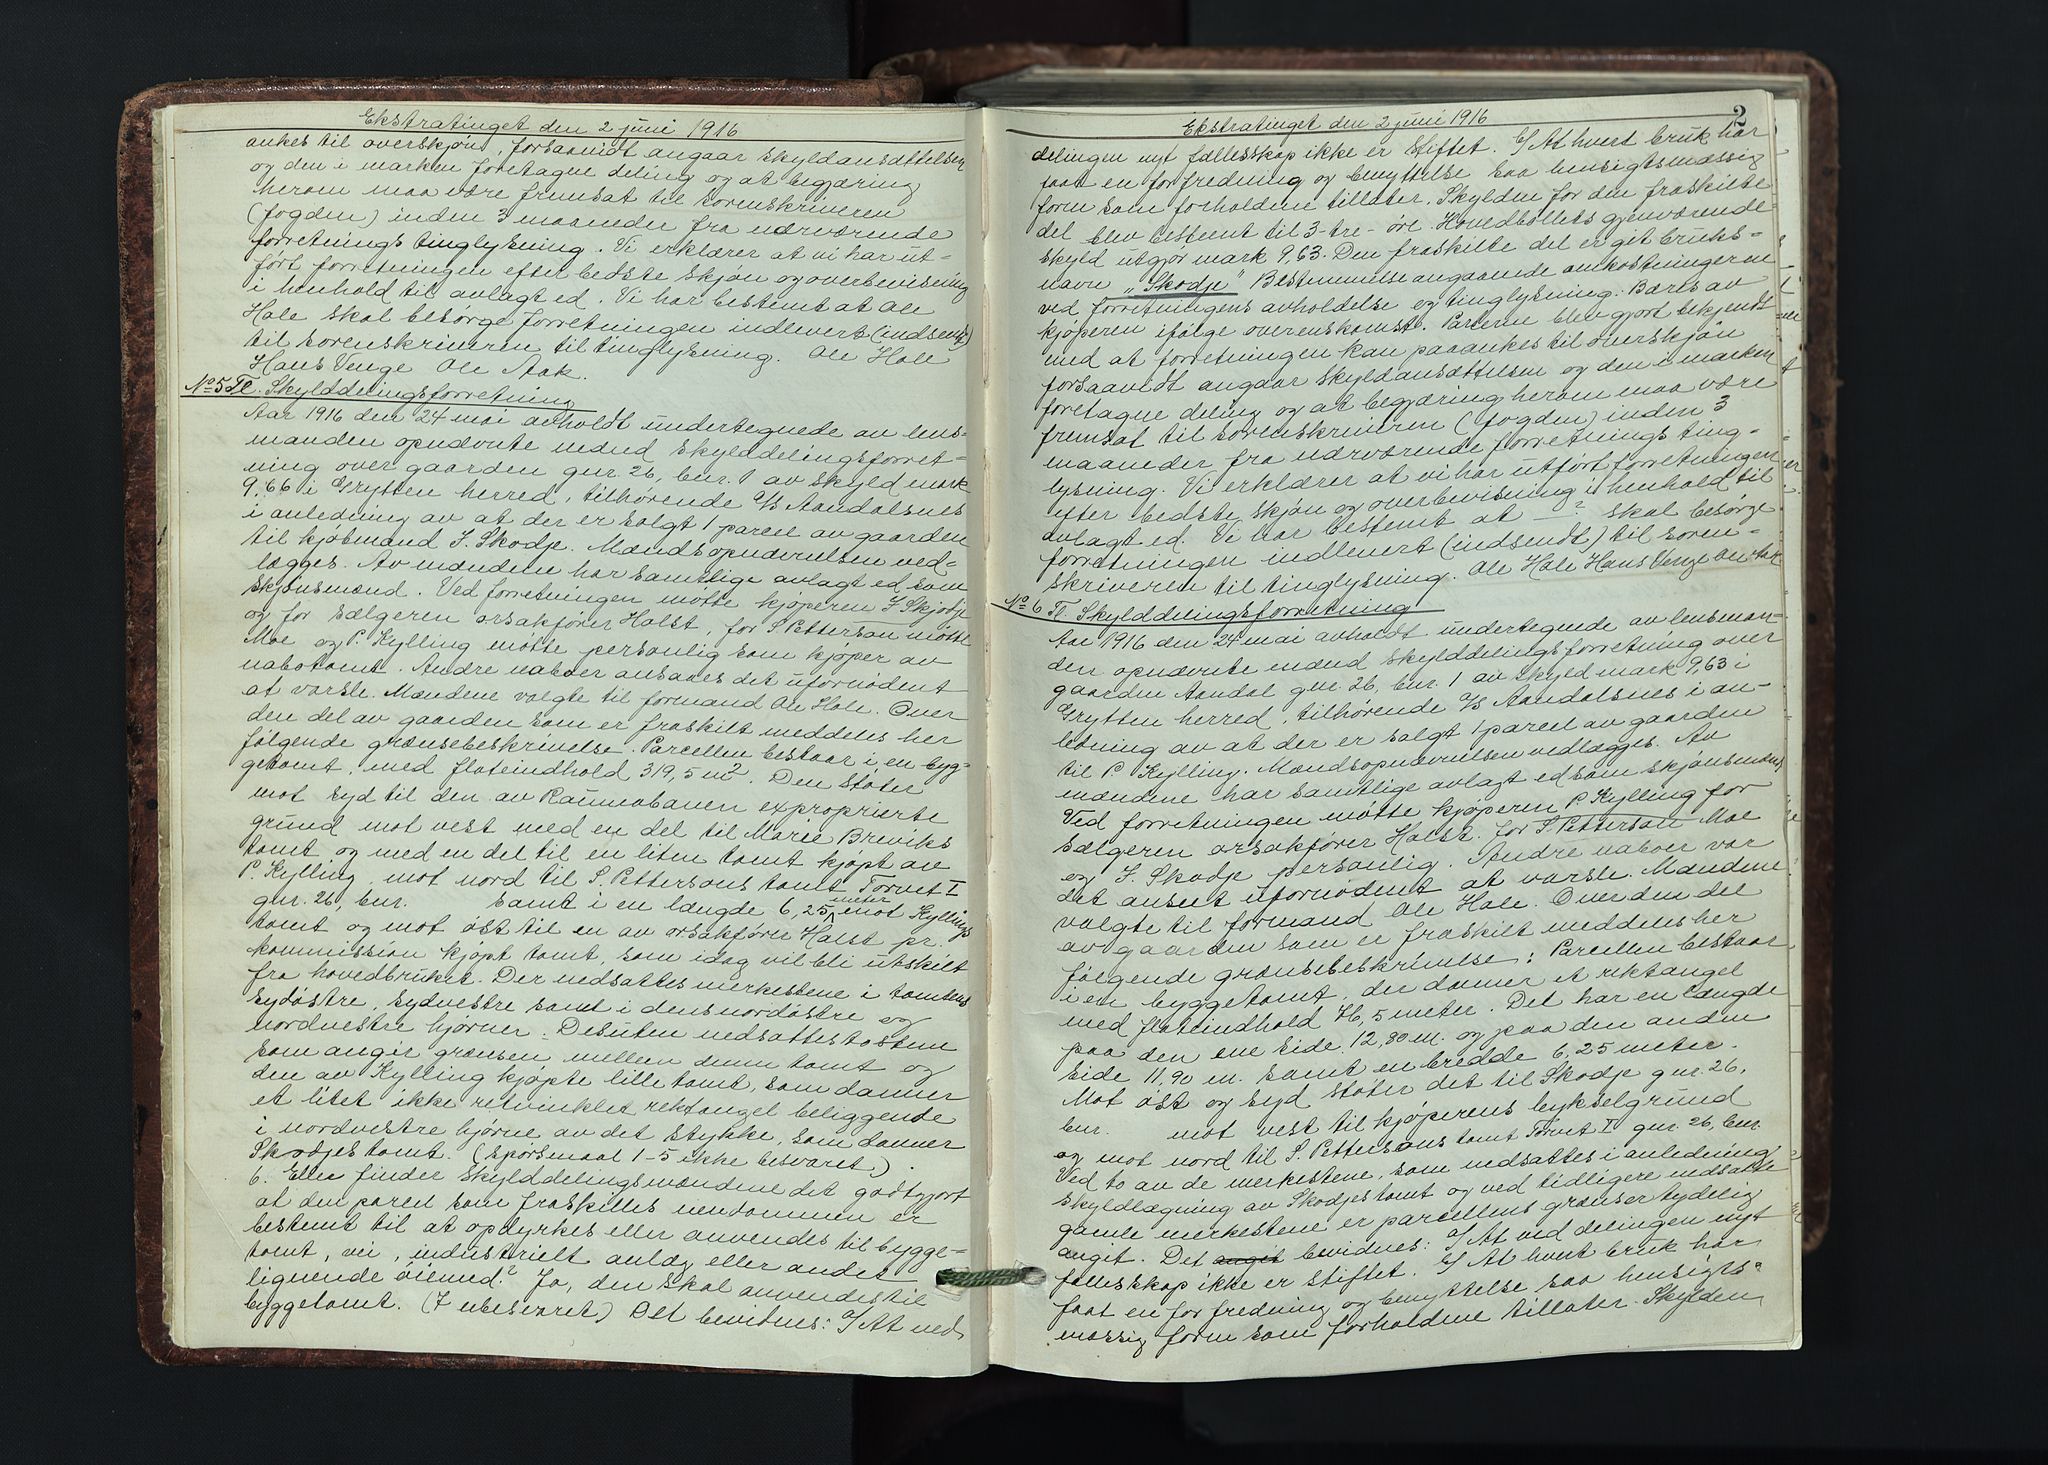 Ekstratinget den 2 juni 1916
ankes til overskjøn, forsaavidt angaar skyldansættelsen
og den i marken foretagne deling og at begjæring
herom maa være fremsat til sorenskriveren
(fogden) inden 3 maaneder fra nærværende
forretnings tinglysning. Vi erklærer at vi har ut-
ført forretningen efter bedste skjøn og overbevisning
i henhold til avlagt ed. Vi har bestemt at Ole
Hole skal besørge forretningen indlevert (indsendt)
til sorenskriveren til tinglysning. Ole Hole
Hans Venge Ole Aak.
No 5 Tl. Skylddelingsforretning
Aar 1916 den 24 mai avholdt undertegnede av lens-
manden opnævnte mænd skylddelingsforret-
ning over gaarden gnr. 26, bnr. 1 av skyld mark
9,66 i Grytten herred, tilhørende A/S Aandalsnes
i anledning av at der er solgt 1 parcel av gaarden
til kjøbmand J. Skodje. Mændsopnævnelsen ved-
lægges. Av mændene har samtlige avlagt ed som
skjønsmænd. Ved forretningen møtte kjøperen J. Skjodje
og for sælgeren orsakfører Holst, for S. Petterson møtte
Moe og P. Kylling møtte personlig som kjøper av
nabotomt. Andre naboer ansaaes det ufornødent
at varsle. Mændene valgte til formand Ole Hole. Over
den del av gaarden som er fraskilt meddeles her
følgende grænsebeskrivelse. Parcellen bestaar i en byg-
getomt, med flateindhold 319,5 m2. Den støter
mot syd til den av Raumabanen exproprierte
grund mot vest med en del til Marie Breviks
tomt og med en del til en liten tomt kjøpt av
P. Kylling, mot nord til S. Pettersons tomt Torvet I
gnr. 26, bnr. samt i en længde 6,25 meter mot Kyllings
tomt og mot øst til en av orsakfører Holst pr.
kommission kjøpt tomt, som idag vil bli utskilt
fra hovedbruket. Der nedsattes merkestene i tomtens
sydøstre, sydvestre samt i dens nordøstre og
nordvestre hjørner. Desuten nedsattes to stene
som angir grænsen mellem denne tomt og
den av Kylling kjøpte lille tomt, som danner
et litet ikke retvinklet rektangel beliggende
i nordvestre hjørne av det stykke, som danner
Skodjes tomt. (Spørsmaal 1-5 ikke besvaret.)
6. Eller finder skylddelingsmændene det godtgjort
at den parcel som fraskilles eiendommen er
bestemt til at opdyrkes eller anvendes til bygge-
tomt, vei, industrielt anlæg eller andet
lignende øiemed? Ja, den skal anvendes til
byggetomt. (7 ubesvaret) Det bevidnes: a/ At ved
Ekstratinget den 2 juni 1916
2
delingen nyt fællesskap ikke er stiftet. b/ At hvert bruk har
faat en for fredning og benyttelse saa hensigtsmæssig
form som forholdene tillater. Skylden for den fraskilte
del blev bestemt til 3-tre- øre. Hovedbøllets gjenværende
skyld utgjør mark 9,63. Den fraskilte del er git bruks-
navn "Skodje" Bestemmelse angaaende omkostningerne
ved forretningens avholdelse og tinglysning: Bæres av
kjøperen ifølge overenskomst. Parterne blev gjort bekjendt
med at forretningen kan paaankes til overskjøn
forsaavidt angaar skyldansættelsen og den i marken
foretagne deling og at begjæring herom maa være
fremsat til sorenskriveren (fogden) inden 3
maaneder fra nærværende forretnings ting-
lysning. Vi erklærer at vi har utført forretningen
efter bedste skjøn og overbevisning i henhold til
avlagt ed. Vi har bestemt at — ? skal besørge
forretningen indlevert (indsendt) til soren-
skriveren til tinglysning. Ole Hole Hans Venge Ole Aak
No 6 Tl. Skylddelingsforretning
Aar 1916 den 24 mai avholdt undertegnede av lensman-
den opnævnte mænd skylddelingsforretning over
gaarden Aandal gnr. 26, bnr. 1 av skyld mark 9,63 i
Grytten herred, tilhørende A/S Aandalsnes i an-
ledning av at der er solgt 1 parcel av gaarden
til P. Kylling. Mændsopnævnelsen vedlægges. Av
mændene har samtlige avlagt ed som skjønsmænd
Ved forretningen møtte kjøperen P. Kylling for
sælgeren orsakfører Holst. for S. Petterson Moe
og J. Skodje personlig. Andre naboer var
det anseet ufornødent at varsle. Mændene
valgte til formand Ole Hole. Over den del
av gaarden som er fraskilt meddeles her
følgende grænsebeskrivelse: Parcellen bestaar
i en byggetomt, der danner et rektangel
med flateindhold 76,5 meter. Det har en længde
paa den ene side 12,80 m. og paa den anden
side 11,90 m. samt en bredde 6,25 meter.
Mot øst og syd støter det til Skodje gnr. 26,
bnr. mot vest til kjøperens bykselgrund
og mot nord til S. Pettersons tomt Torvet I gnr. 26, bnr.
Ved to av de merkestene, som nedsattes i anledning
skyldlægning av Skodjes tomt og ved tidligere nedsatte
gamle merkestene er parcellens grænser tydelig
angit. Det angit bevidnes: a/ At ved delingen nyt
fællesskap ikke er stiftet. b/ At hvert bruk har
faat en for fredning og benyttelse saa hensigts-
mæssig form som forholdene tillater. Skylden